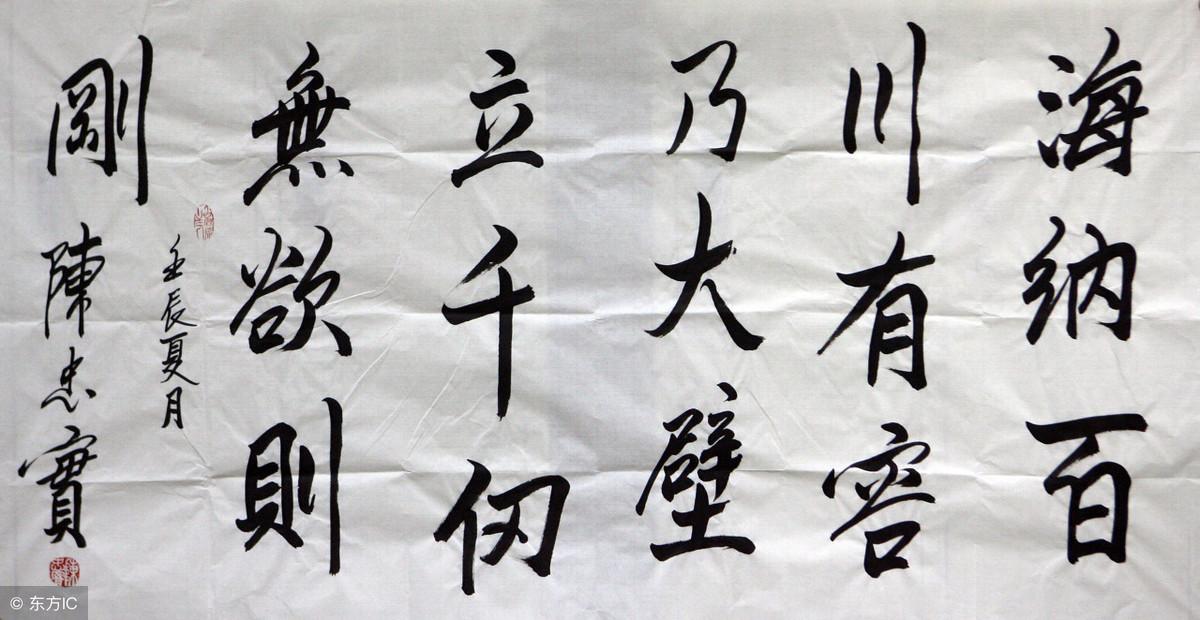 海納百
川有容
乃大壁
立千仞
無欲則
剛
壬辰夏月
陳忠實
© 东方IC